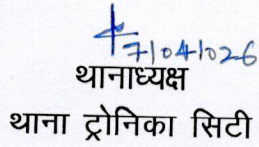 7/04/026
थानाध्यक्ष
थाना ट्रोनिका सिटी